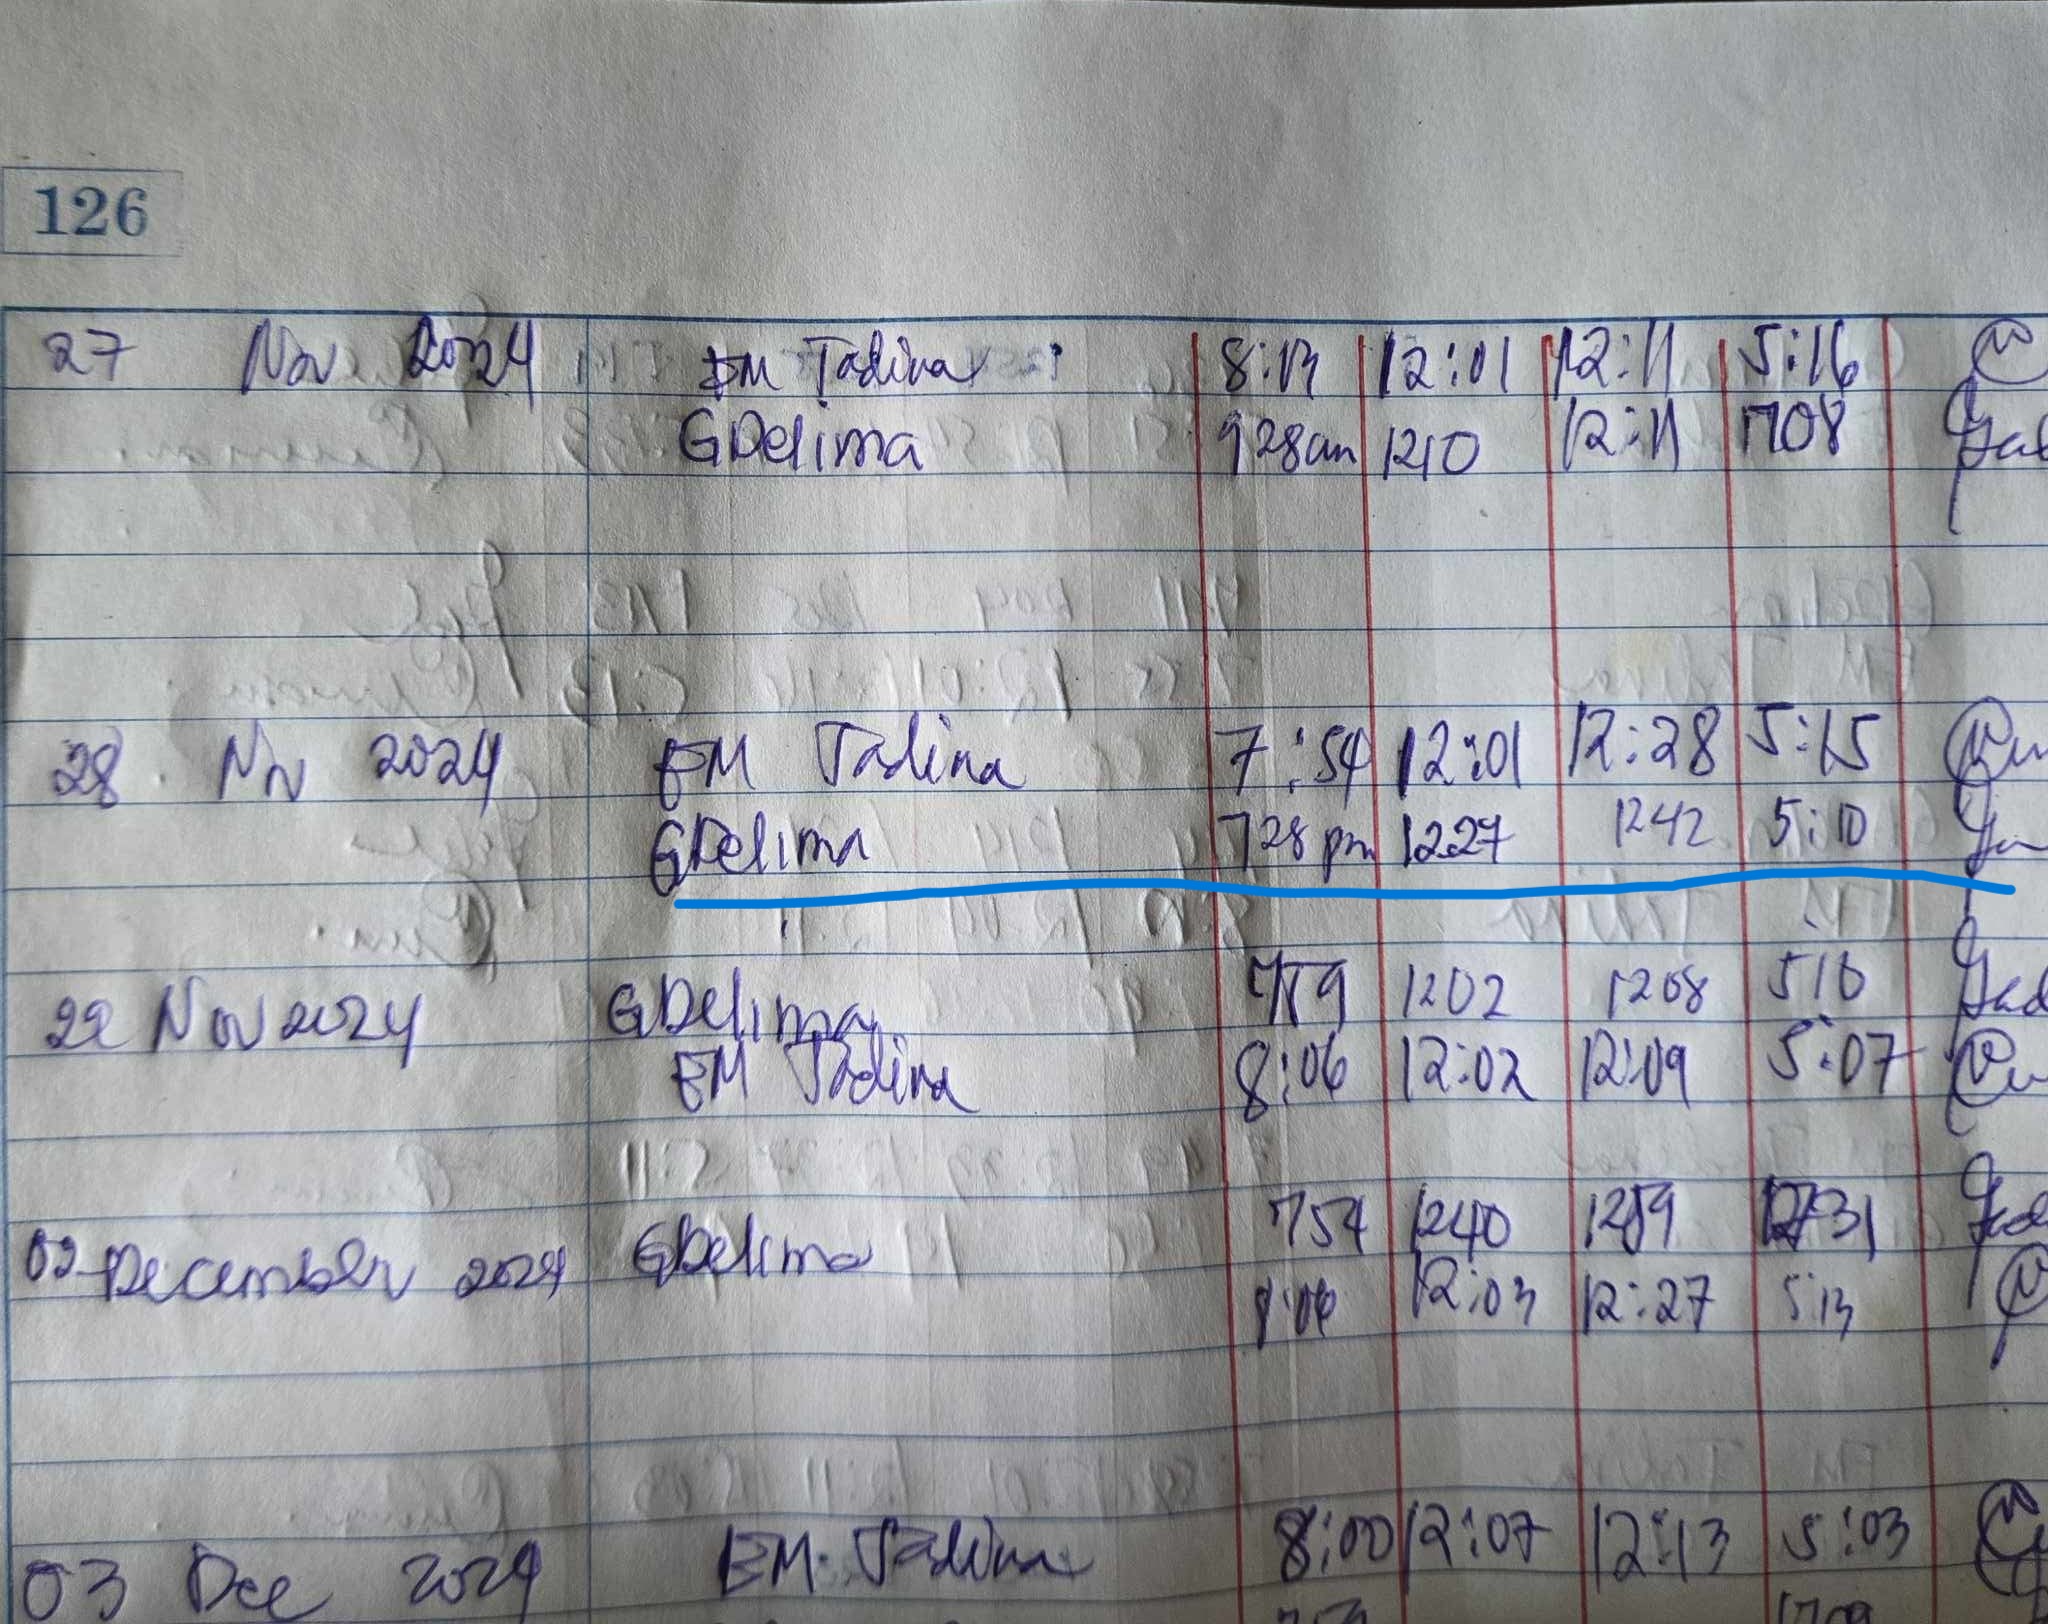 126
27 Nov 2024 EM Tadina 8:13 12:01 12:11 5:16
GDelima 928am 1210 12:11 1708
28 Nov 2024 EM Tadina 7:54 12:01 12:28 5:15
GDelima 728pm 1227 1242 5:10
22 Nov 2024 GDelima 759 1202 1208 510
EM Tadina 8:06 12:02 12:09 5:07
02 December 2024 GDelima 754 1240 1259
12:03 12:27 5:13
03 Dec 2024 EM Tadina 8:00 12:07 12:13 5:03